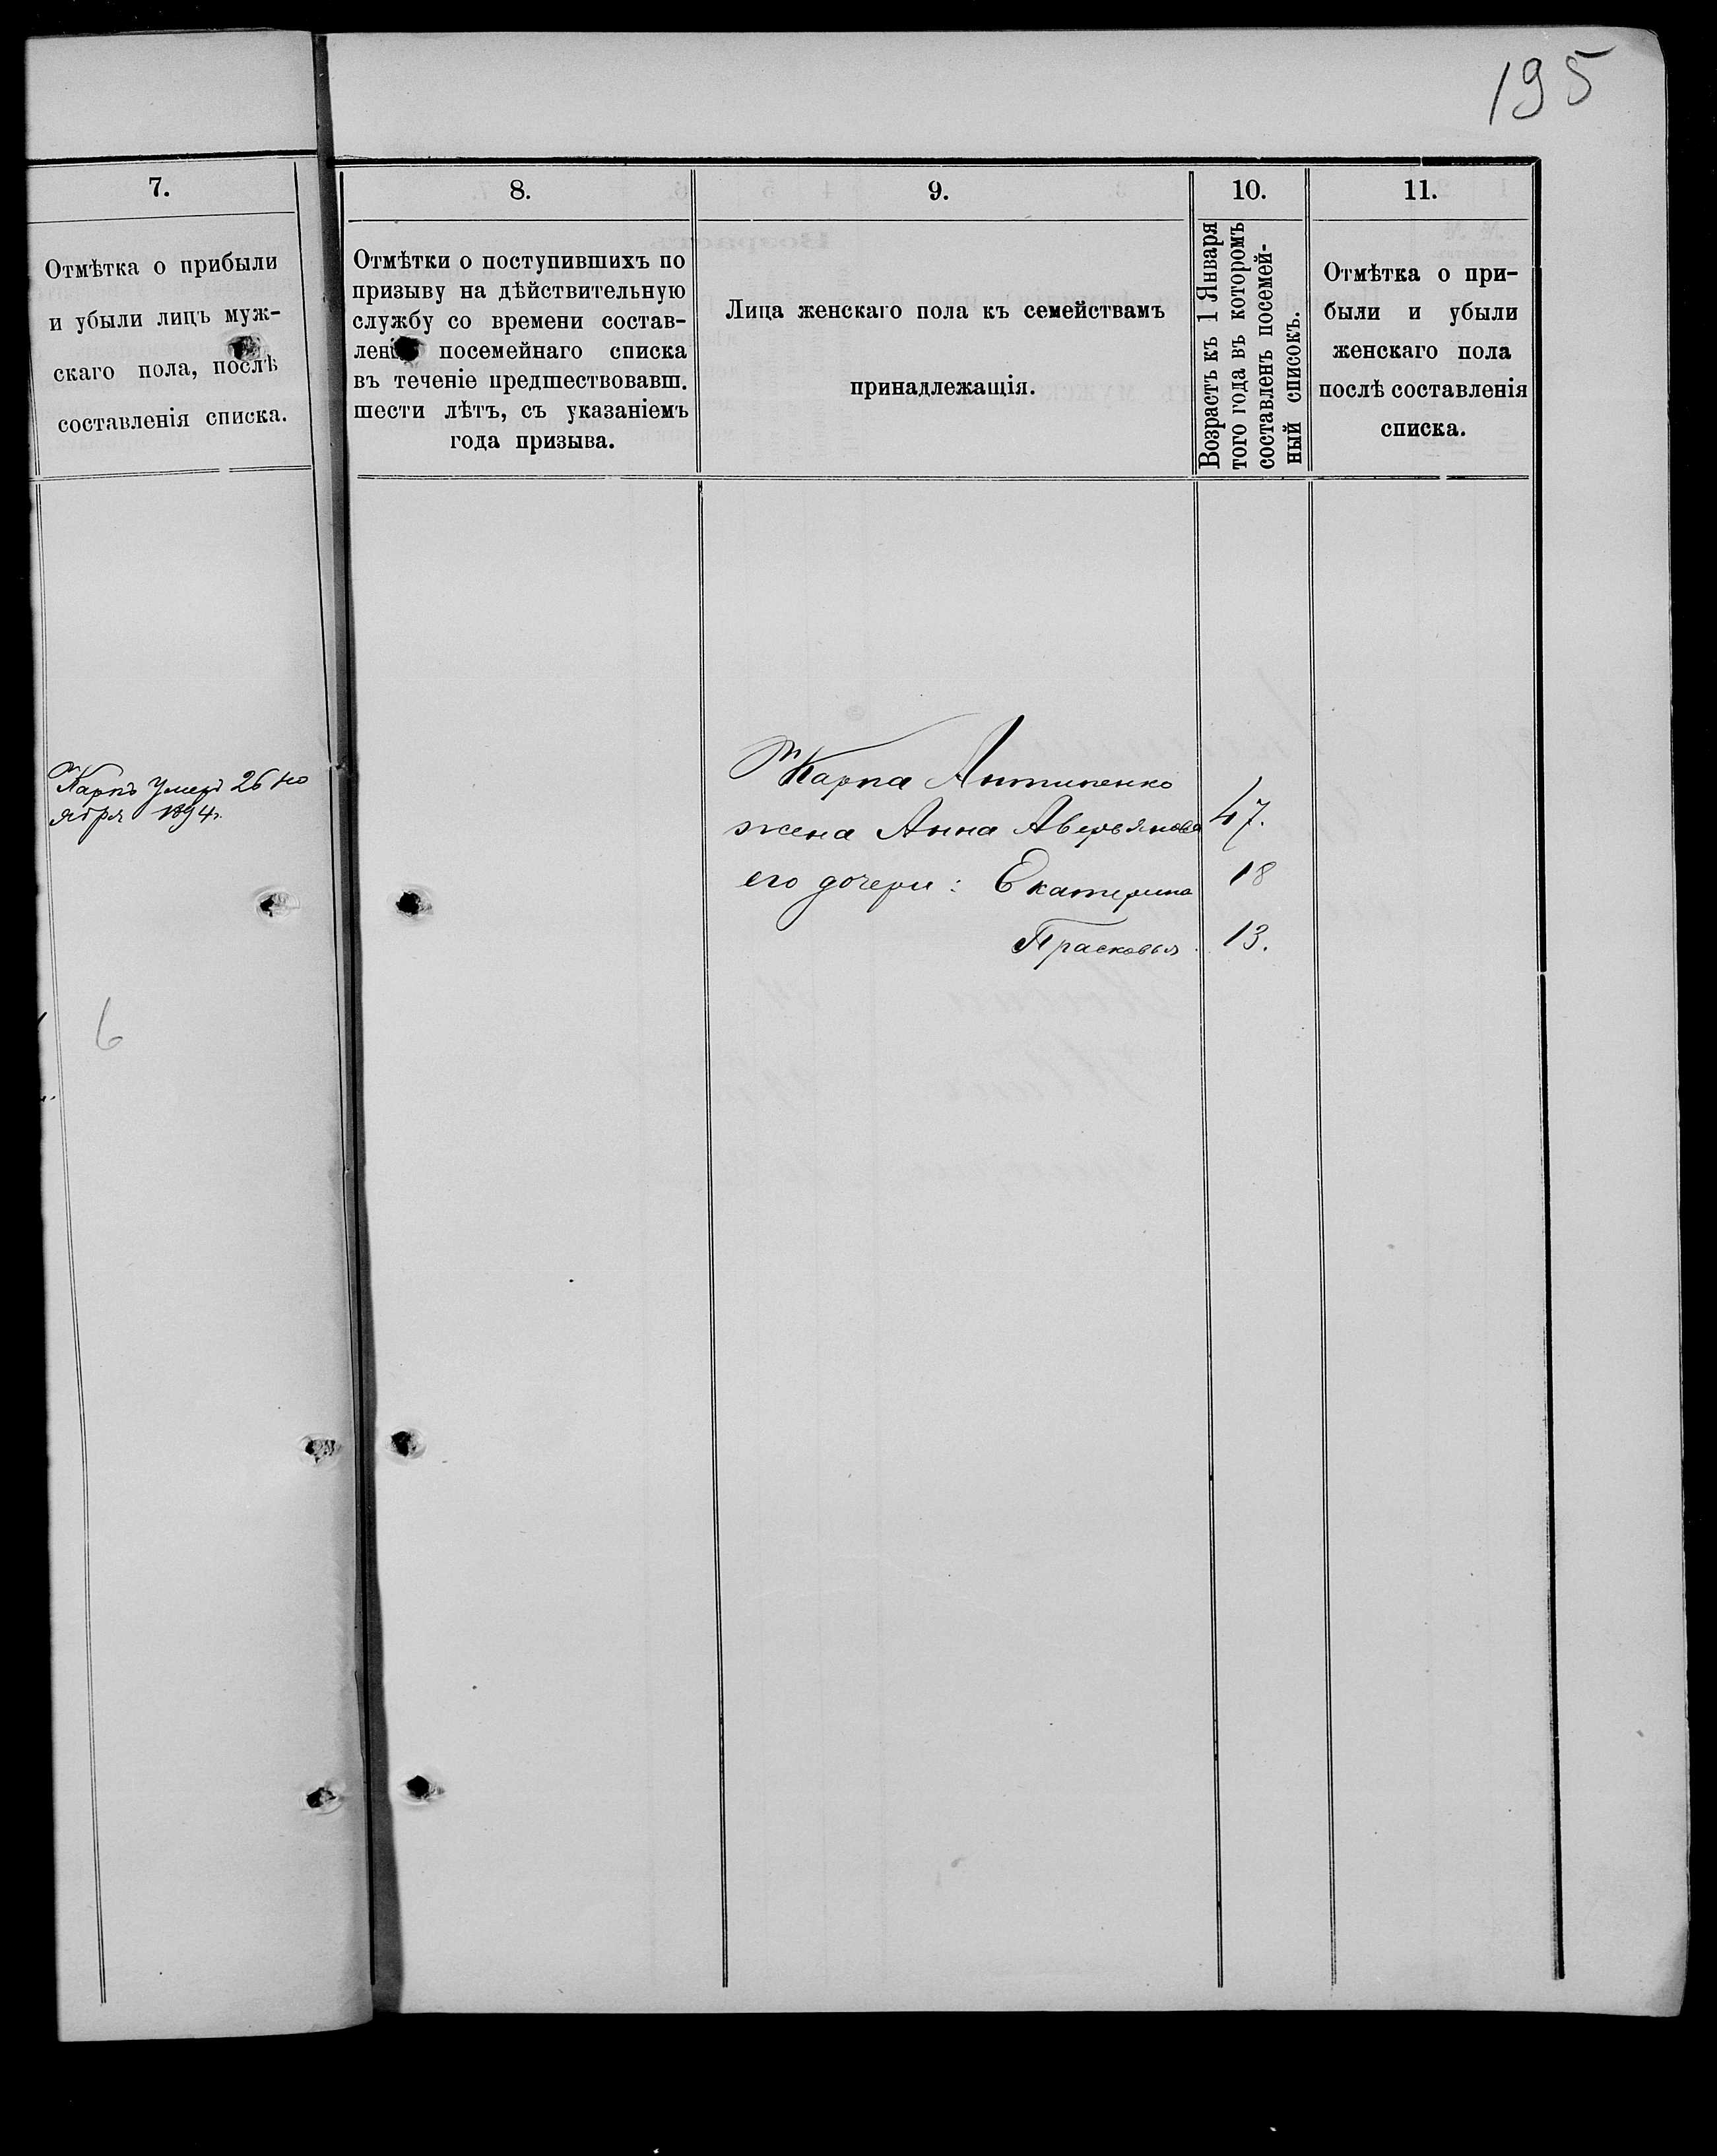 195
7.
Отмѣтка о прибыли
и убыли лицъ муж-
скаго пола, послѣ
составленія списка.
Карпъ умеръ 26 но
ября 1894 г.
6
8.
Отмѣтки о поступившихъ по
призыву на дѣйствительную
службу со времени состав-
лені посемейнаго списка
въ теченіе предшествовавш.
шести лѣтъ, съ указаніемъ
года призыва.
9.
Лица женскаго пола къ семействамъ
принадлежащія.
10.
Возрастъ къ 1 Января
того года въ которомъ
составленъ посемей-
ный списокъ.
11.
Отмѣтка о при-
были и убыли
женскаго пола
послѣ составленія
списка.
Карпа Антипенко
жена Анна Аверьянова 47.
его дочери: Екатерина 18
Прасковья 13.